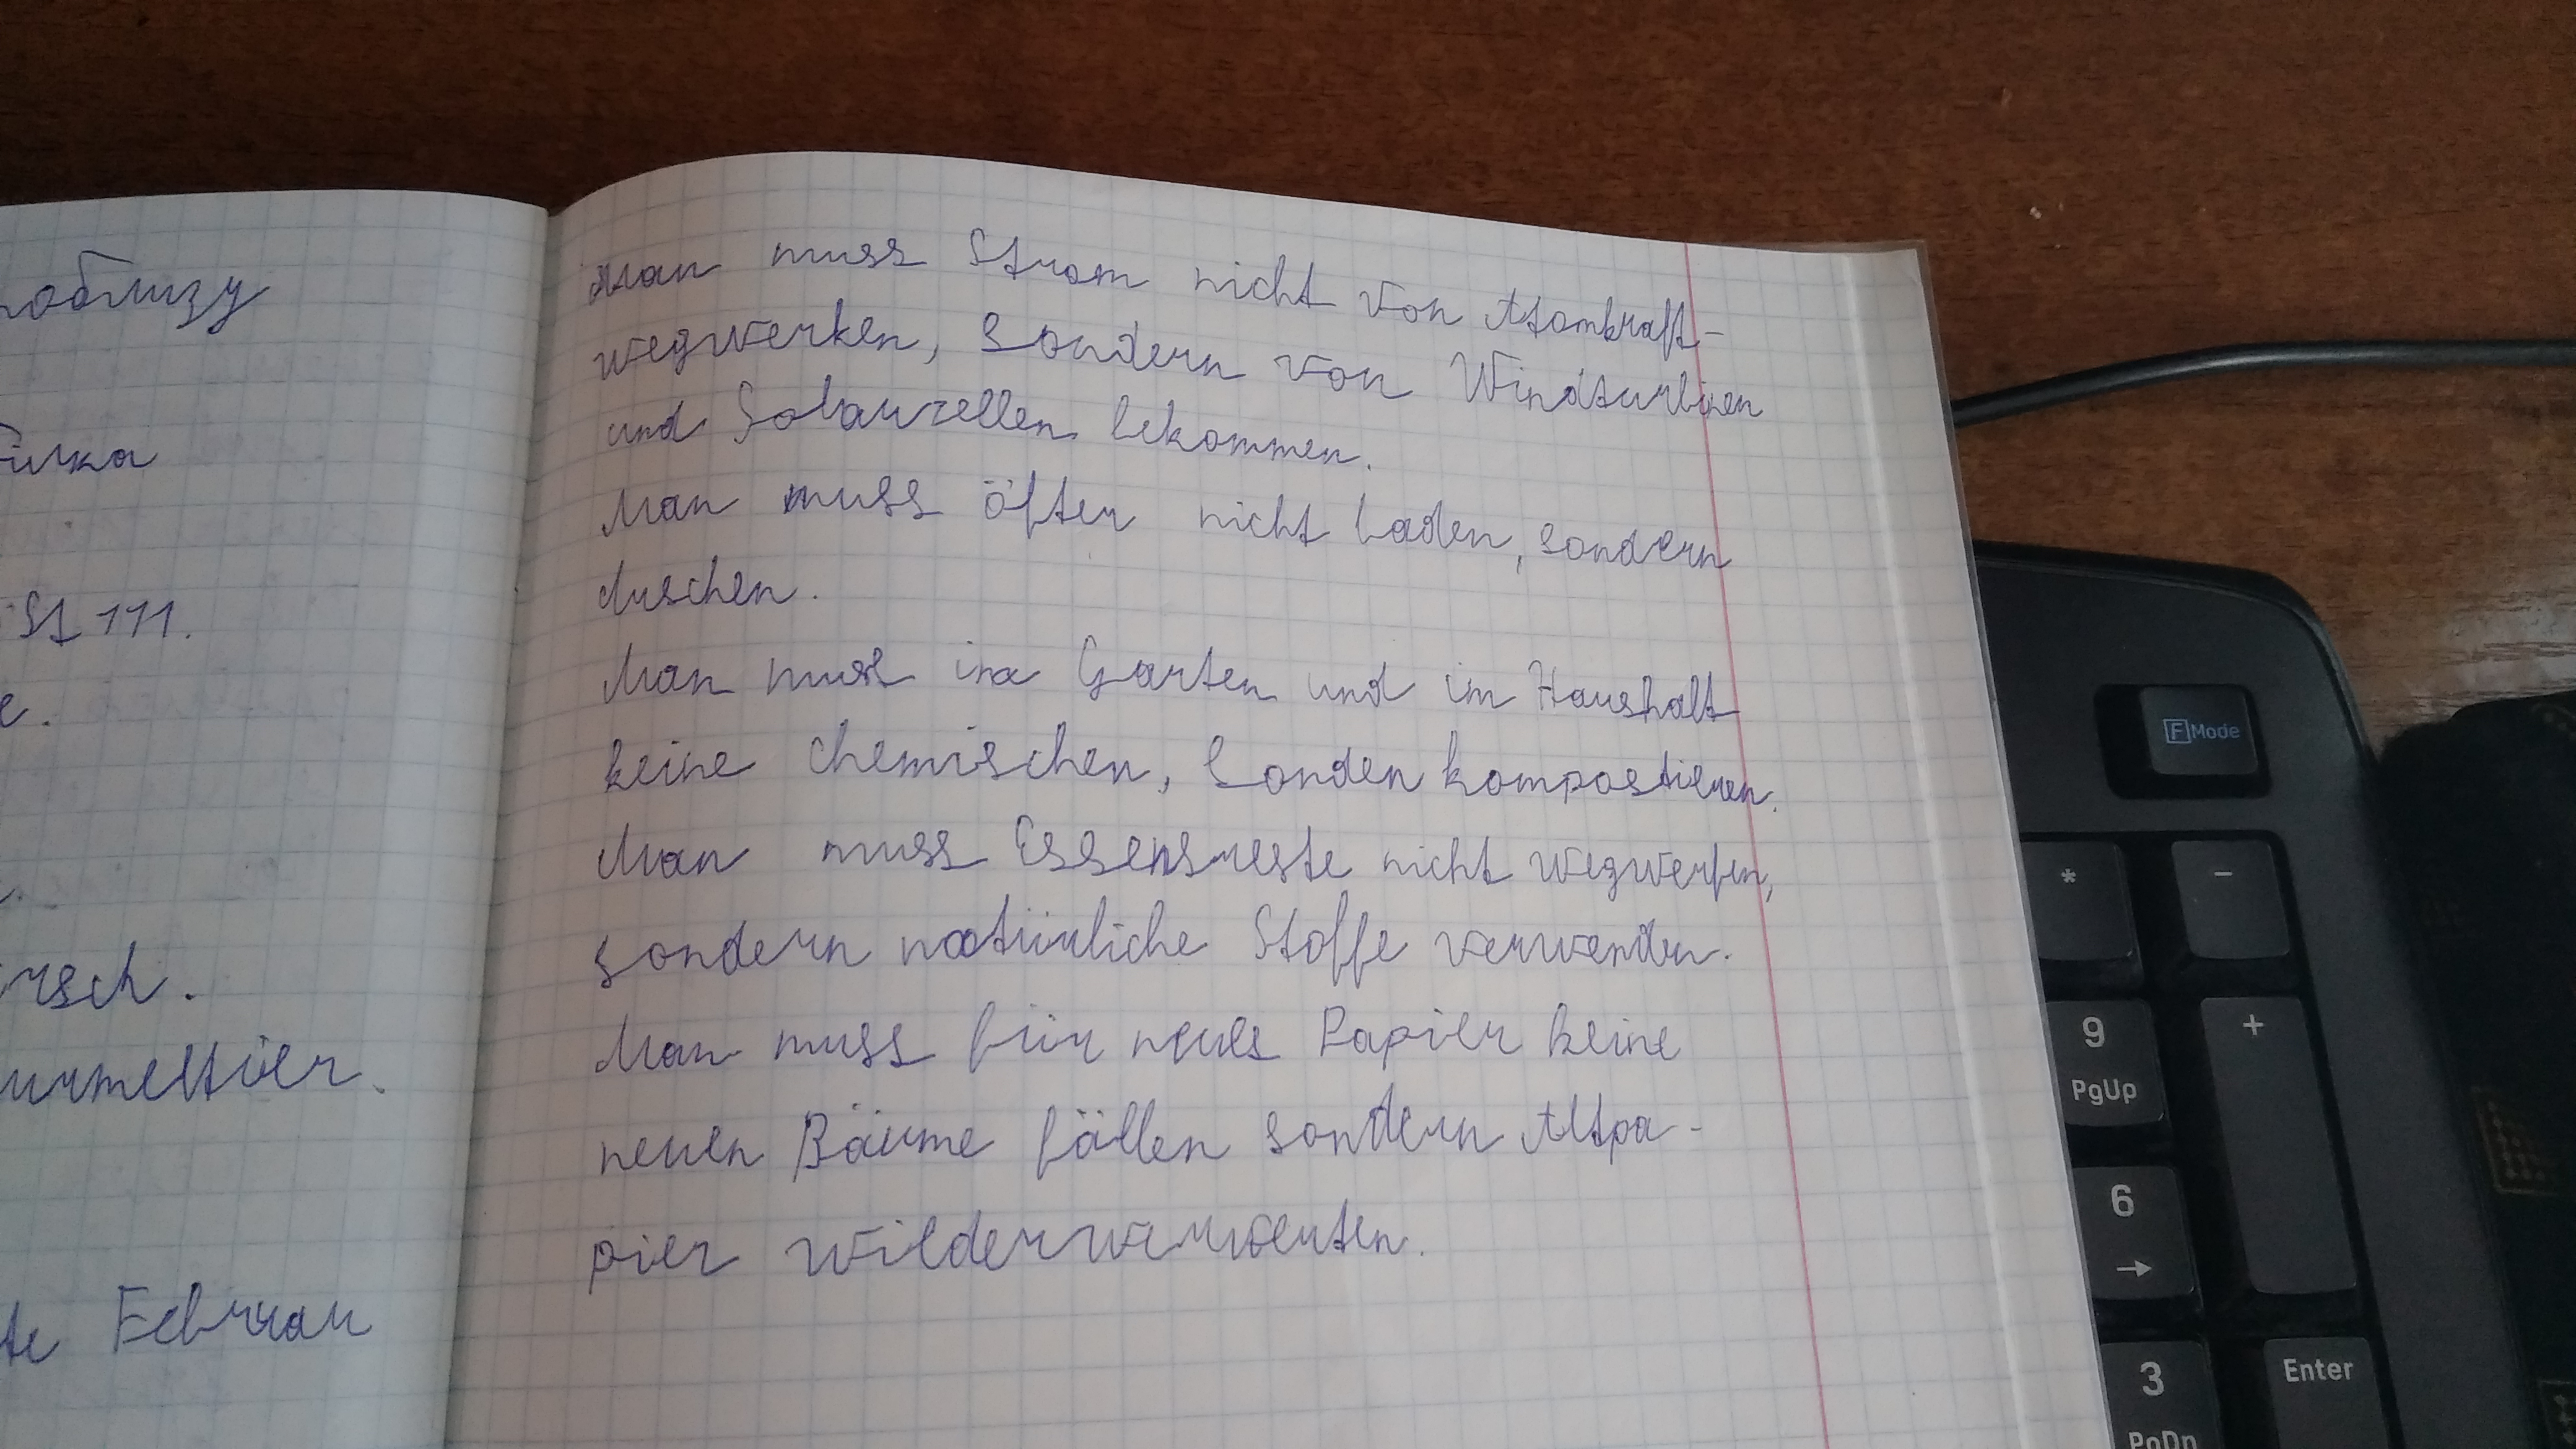 облизу
ілка
St 111.
e.
rsch.
urmeltier.
te Februar
Man muss Strom nicht von Atomkraft-
wegwerken, sondern von Windturbinen
und Solarzellen bekommen.
Man muss öfter nicht baden, sondern
duschen.
Man muss im Garten und im Haushalt
keine chemischen, sonden kompostieren.
Man muss Essensreste nicht wegwerfen,
sondern natürliche Stoffe verwenden.
Man muss für neues Papier keine
neuen Bäume fällen sondern Altpa-
pier wilderverwenten.
F Mode
* -
9 +
PgUp
6
→
3 Enter
PgDn